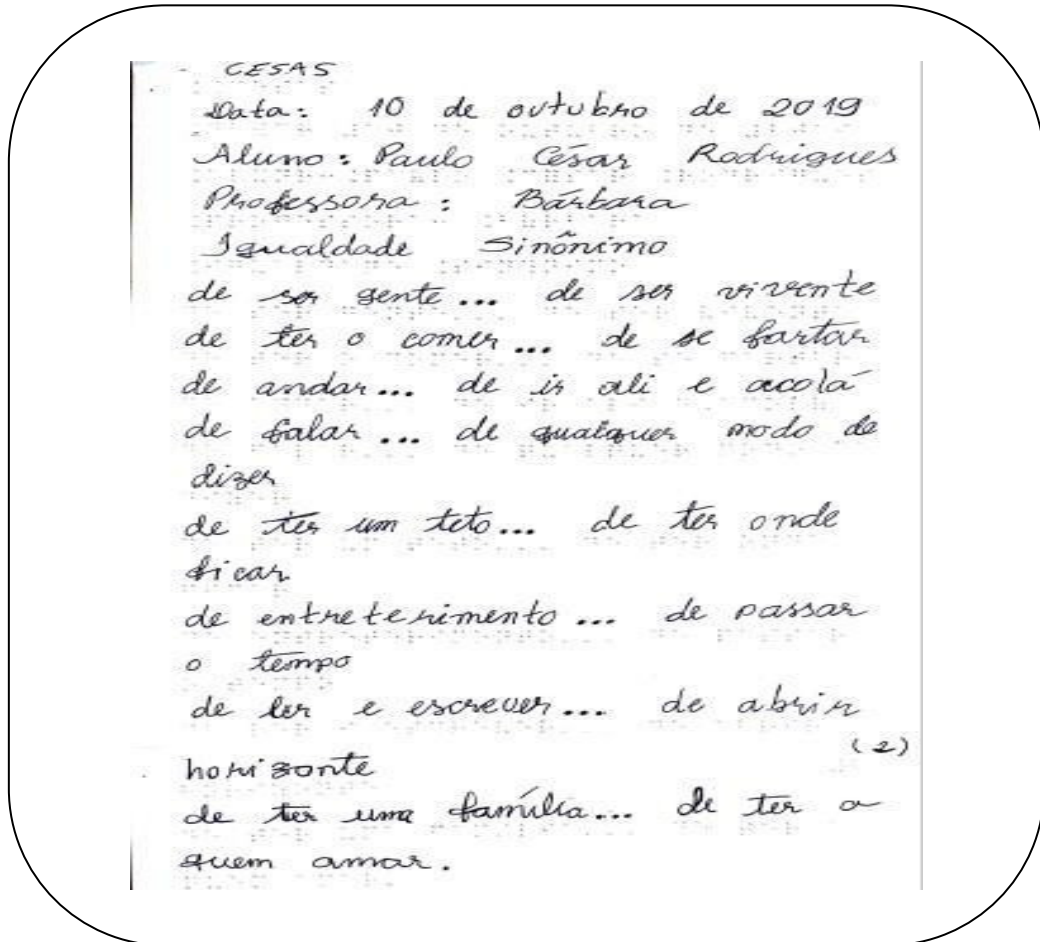 CESAS
Data: 10 de outubro de 2019
Aluno: Paulo César Rodrigues
Professora: Bárbara
Igualdade Sinônimo
de ser gente... de ser vivente
de ter o comer... de se fartar
de andar... de ir ali e acolá
de falar... de qualquer modo de
dizer
de ter um teto... de ter onde
ficar
de entretenimento... de passar
o tempo
de ler e escrever... de abrir
(2)
horizonte
de ter uma família... de ter a
quem amar.